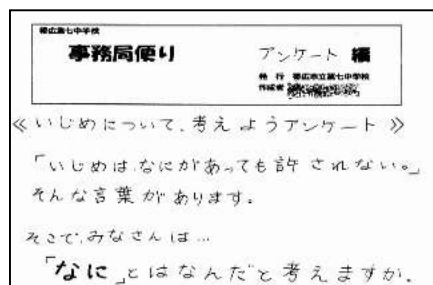 帯広第七中学校
事務局便り アンケート 編
発 行 帯広市立第七中学校
作成者
≪いじめについて、考えようアンケート≫
「いじめは、なにがあっても許されない。」
そんな言葉があります。
そこで、みなさんは…
「なに」とはなんだと考えますか。